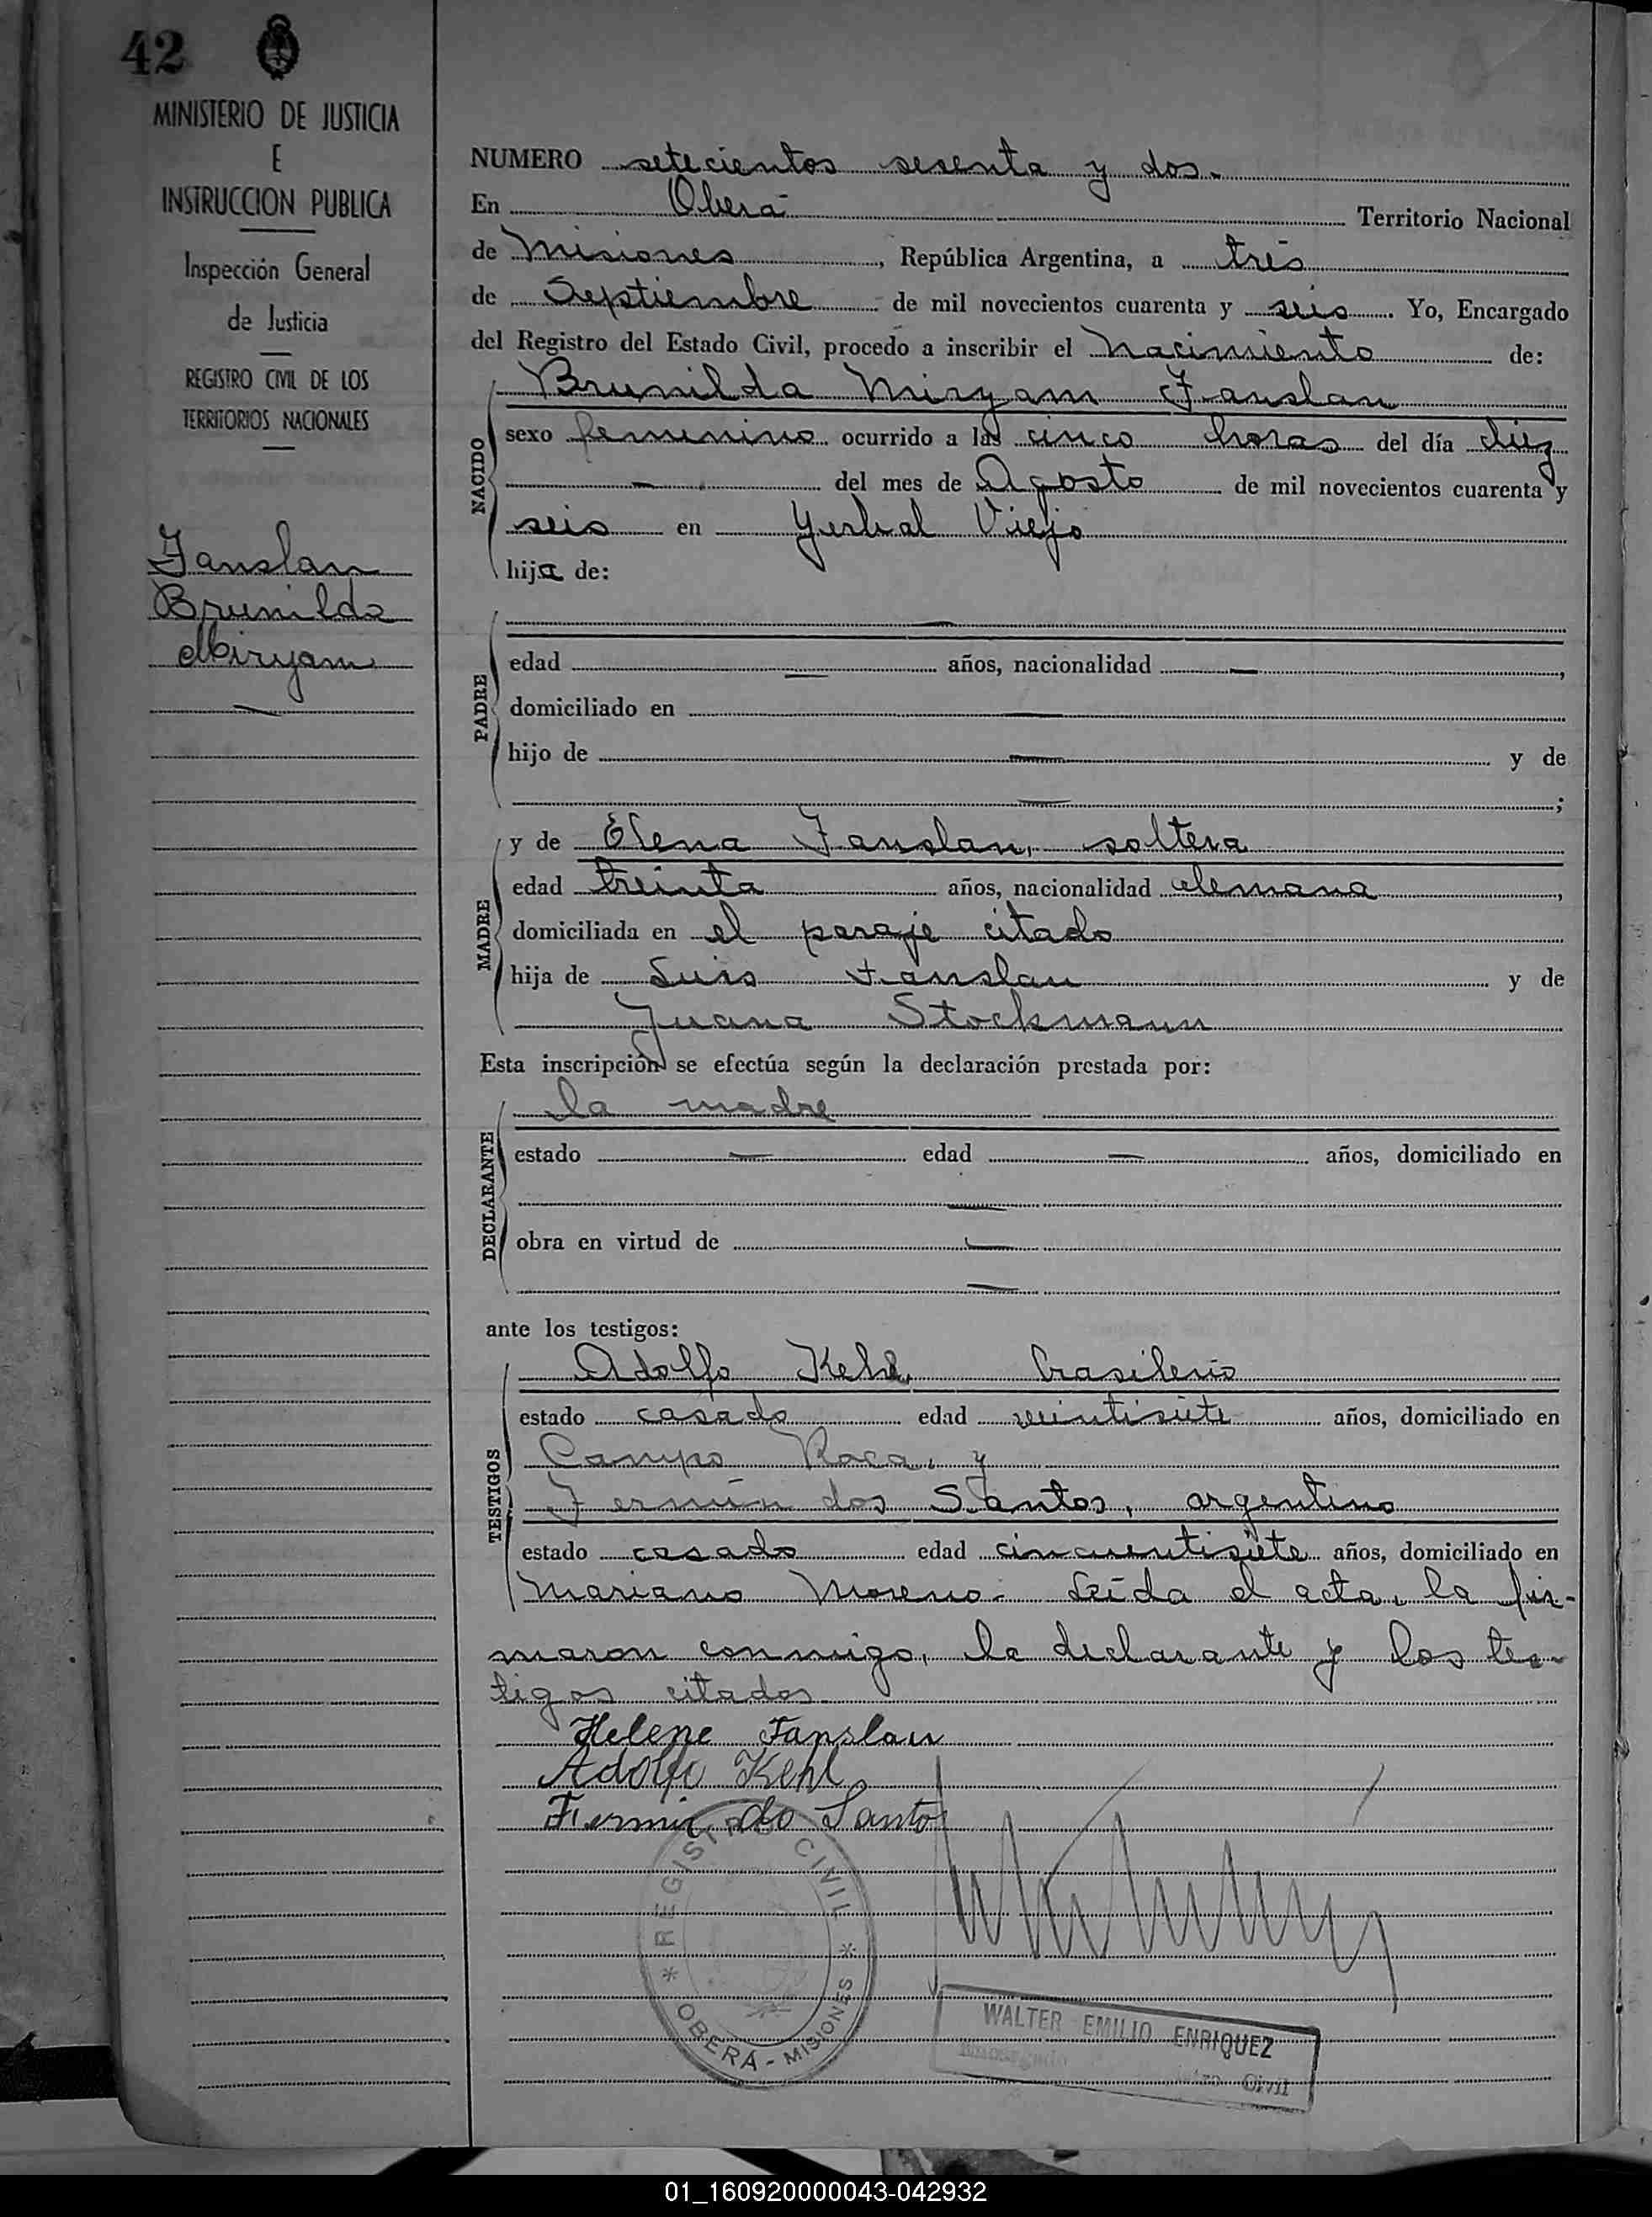 42
MINISTERIO DE JUSTICIA
E
INSTRUCCION PUBLICA
Inspección General
de Justicia
REGISTRO CIVIL DE LOS
TERRITORIOS NACIONALES
Fanslau
Brunilda
Miryam
NUMERO setecientos sesenta y dos.
En Oberá Territorio Nacional
de Misiones, República Argentina, a tres
de Septiembre de mil novecientos cuarenta y seis. Yo, Encargado
del Registro del Estado Civil, procedo a inscribir el Nacimiento de:
NACIDO
Brunilda Miryam Fanslau
sexo femenino ocurrido a las cinco horas del día diez
- del mes de Agosto de mil novecientos cuarenta y
seis en Yerbal Viejo
hija de:
PADRE
—
edad — años, nacionalidad —,
domiciliado en —
hijo de — y de
—;
MADRE
y de Elena Fanslau, soltera
edad treinta años, nacionalidad alemana,
domiciliada en el paraje citado
hija de Luis Fanslau y de
Juana Stockmann
Esta inscripción se efectúa según la declaración prestada por:
DECLARANTE
la madre
estado — edad — años, domiciliado en
—
obra en virtud de —
—
ante los testigos:
TESTIGOS
Adolfo Kehl, brasilero
estado casado edad veintisiete años, domiciliado en
Campo Roca, y
Fermín dos Santos, argentino
estado casado edad cincuentisiete años, domiciliado en
Mariano Moreno.- Leída el acta, la fir-
maron conmigo, la declarante y los tes-
tigos citados.
Helene Fanslau
Adolfo Kehl
Fermin do Santos
* REGISTRO CIVIL *
OBERÁ - MISIONES
WALTER EMILIO ENRIQUEZ
Encargado Civil
01_160920000043-042932